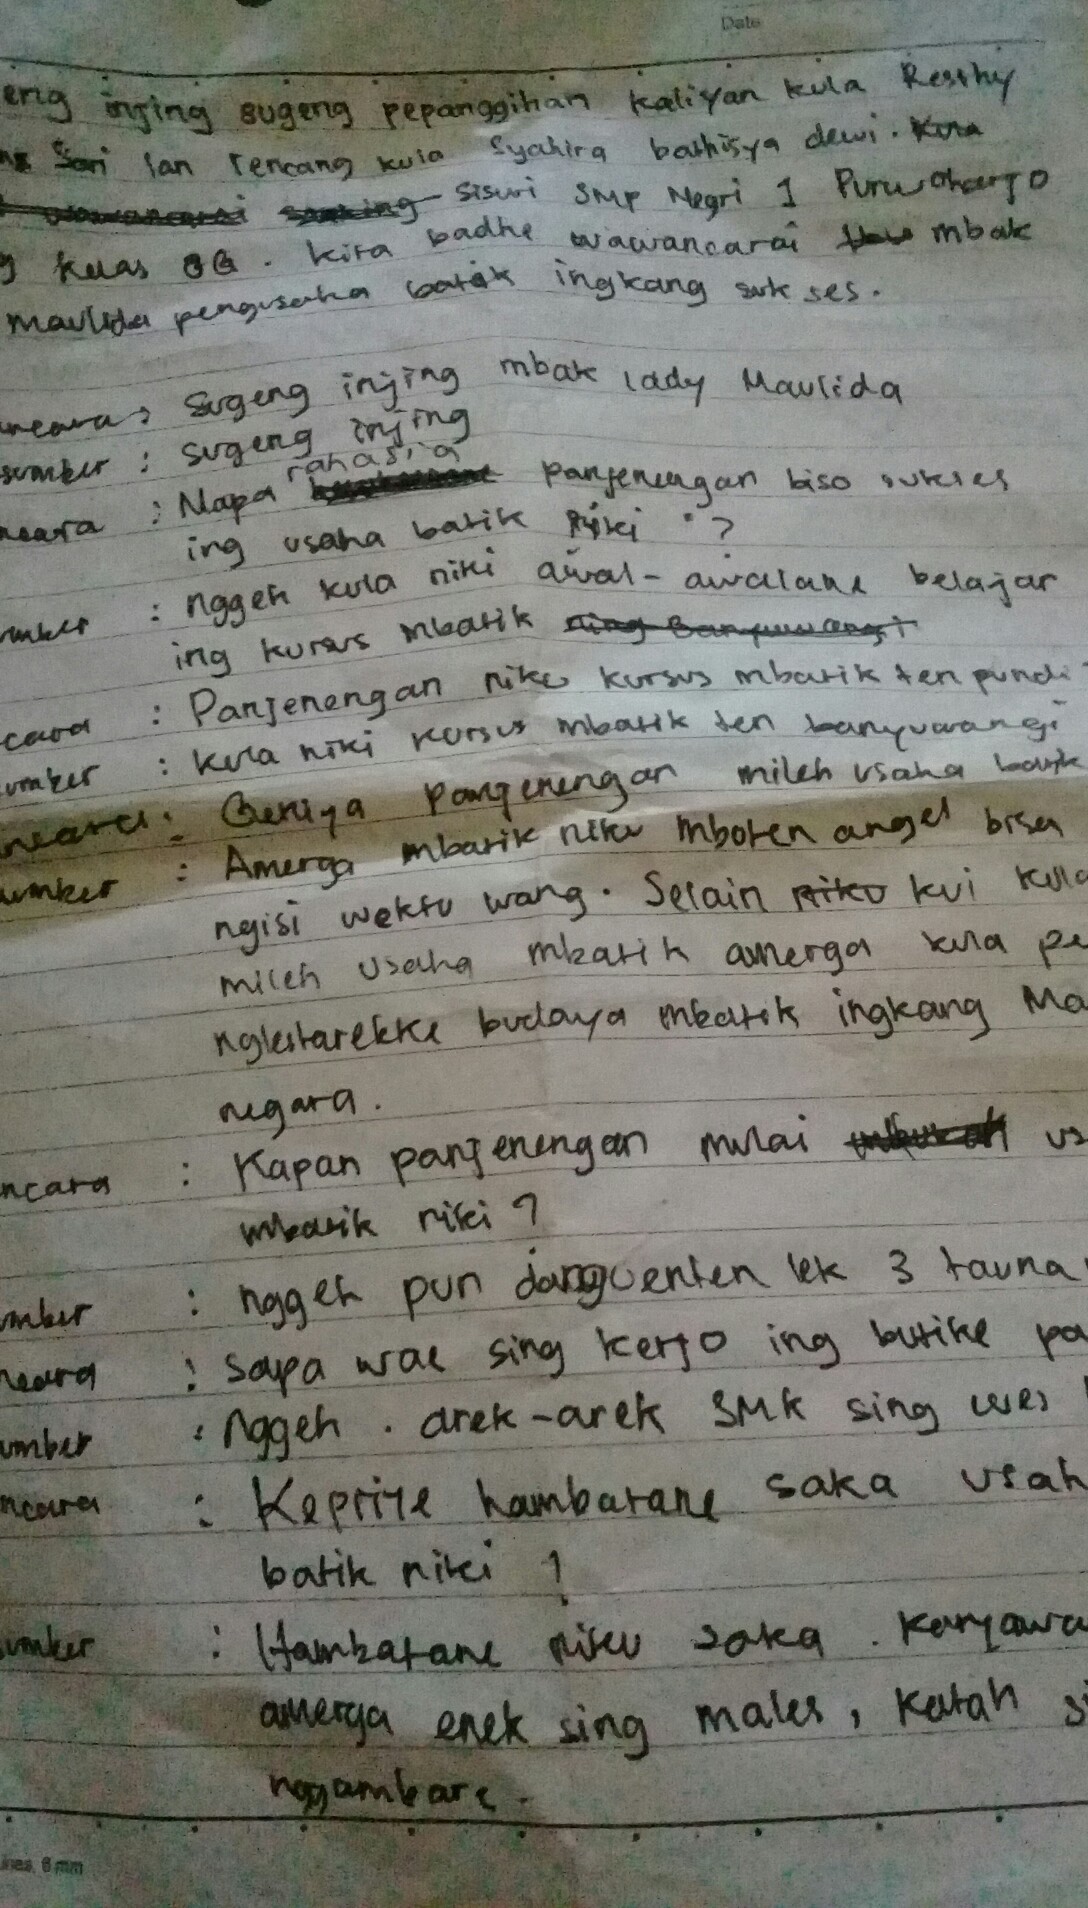 Date
eng injing sugeng pepanggihan kaliyan kula Resthy
Sari lan rencang kula Syahira bathisya dewi. Kita
siswi SMP Negri 1 Purwoharjo
g kelas 8G. Kita badhe wawancarai mbak
Maulida pengusaha batik ingkang sukses.
ncara : Sugeng injing mbak Lady Maulida
sumber : Sugeng injing
rahasia
ncara : Napa panjenengan biso sukses
ing usaha batik niki ?
umber : nggeh kula niki awal-awalane belajar
ing kursus mbatik ning Banyuwangi
cara : Panjenengan niku kursus mbatik ten pundi
umber : kula niki kursus mbatik ten banyuwangi
ncara : Geniya panjenengan mileh usaha batik
umber : Amerga mbatik niku mboten angel bisa
ngisi wektu wang. Selain niku kui kula
mileh usaha mbatik amerga kula pe
nglestarekke budaya mbatik ingkang Ma
negara.
ncara : Kapan panjenengan mulai us
mbatik niki ?
mber : nggeh pun dangu enten lek 3 tauna
ncara : Sapa wae sing kerjo ing butike pa
umber : Nggeh. arek-arek SMK sing wes
ncara : Kepriye hambatane saka usah
batik niki ?
umber : Hambatane niku saka. karyawa
amerga enek sing males, katah si
nggambare.
ines, 6 mm